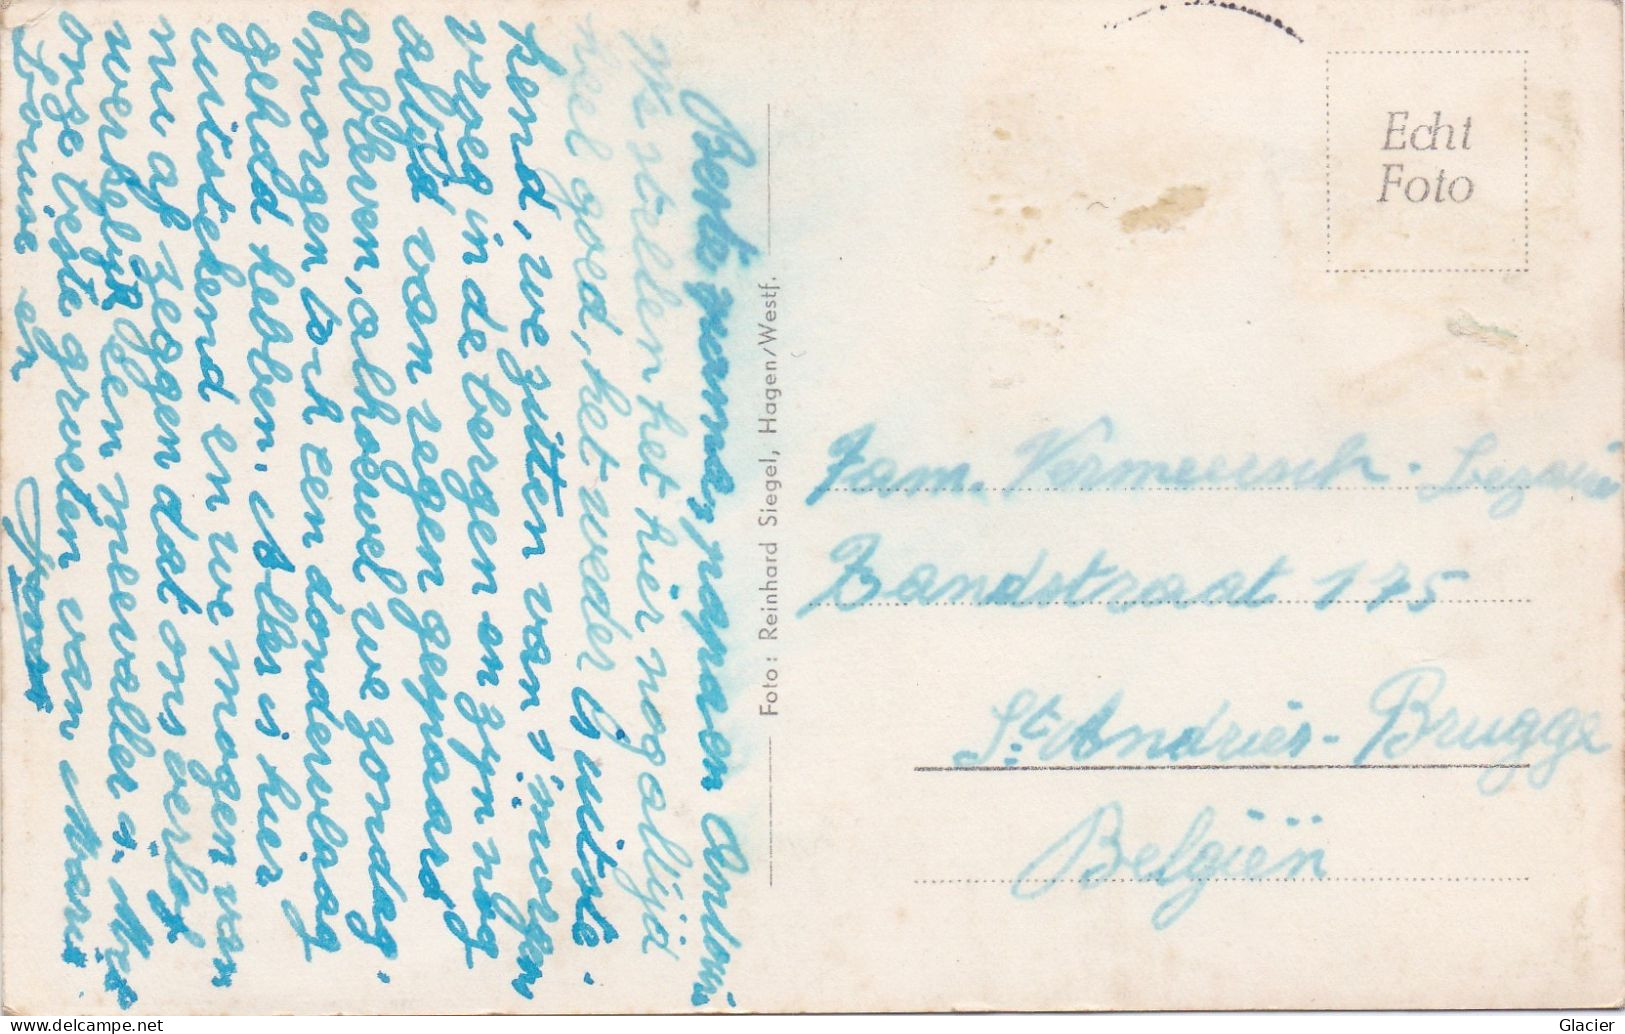 Beste mama, papa en
We stellen het hier nog altijd
heel goed, het weder is uitste-
kend, we zitten van s'morgen
vroeg in de bergen en zijn nog
altijd van regen gespaard
gebleven, alhoewel we zondag-
morgen toch een donderslag
gehad hebben. Alles is hier
uitstekend en we mogen van
nu af zeggen dat ons verlof
werkelijk een meevaller is. Met
onze beste groeten van
Louise en
Foto: Reinhard Siegel, Hagen/Westf.
Echt
Foto
Fam.
Zandstraat 175
St. Andries - Brugge
Belgiën
Glacier